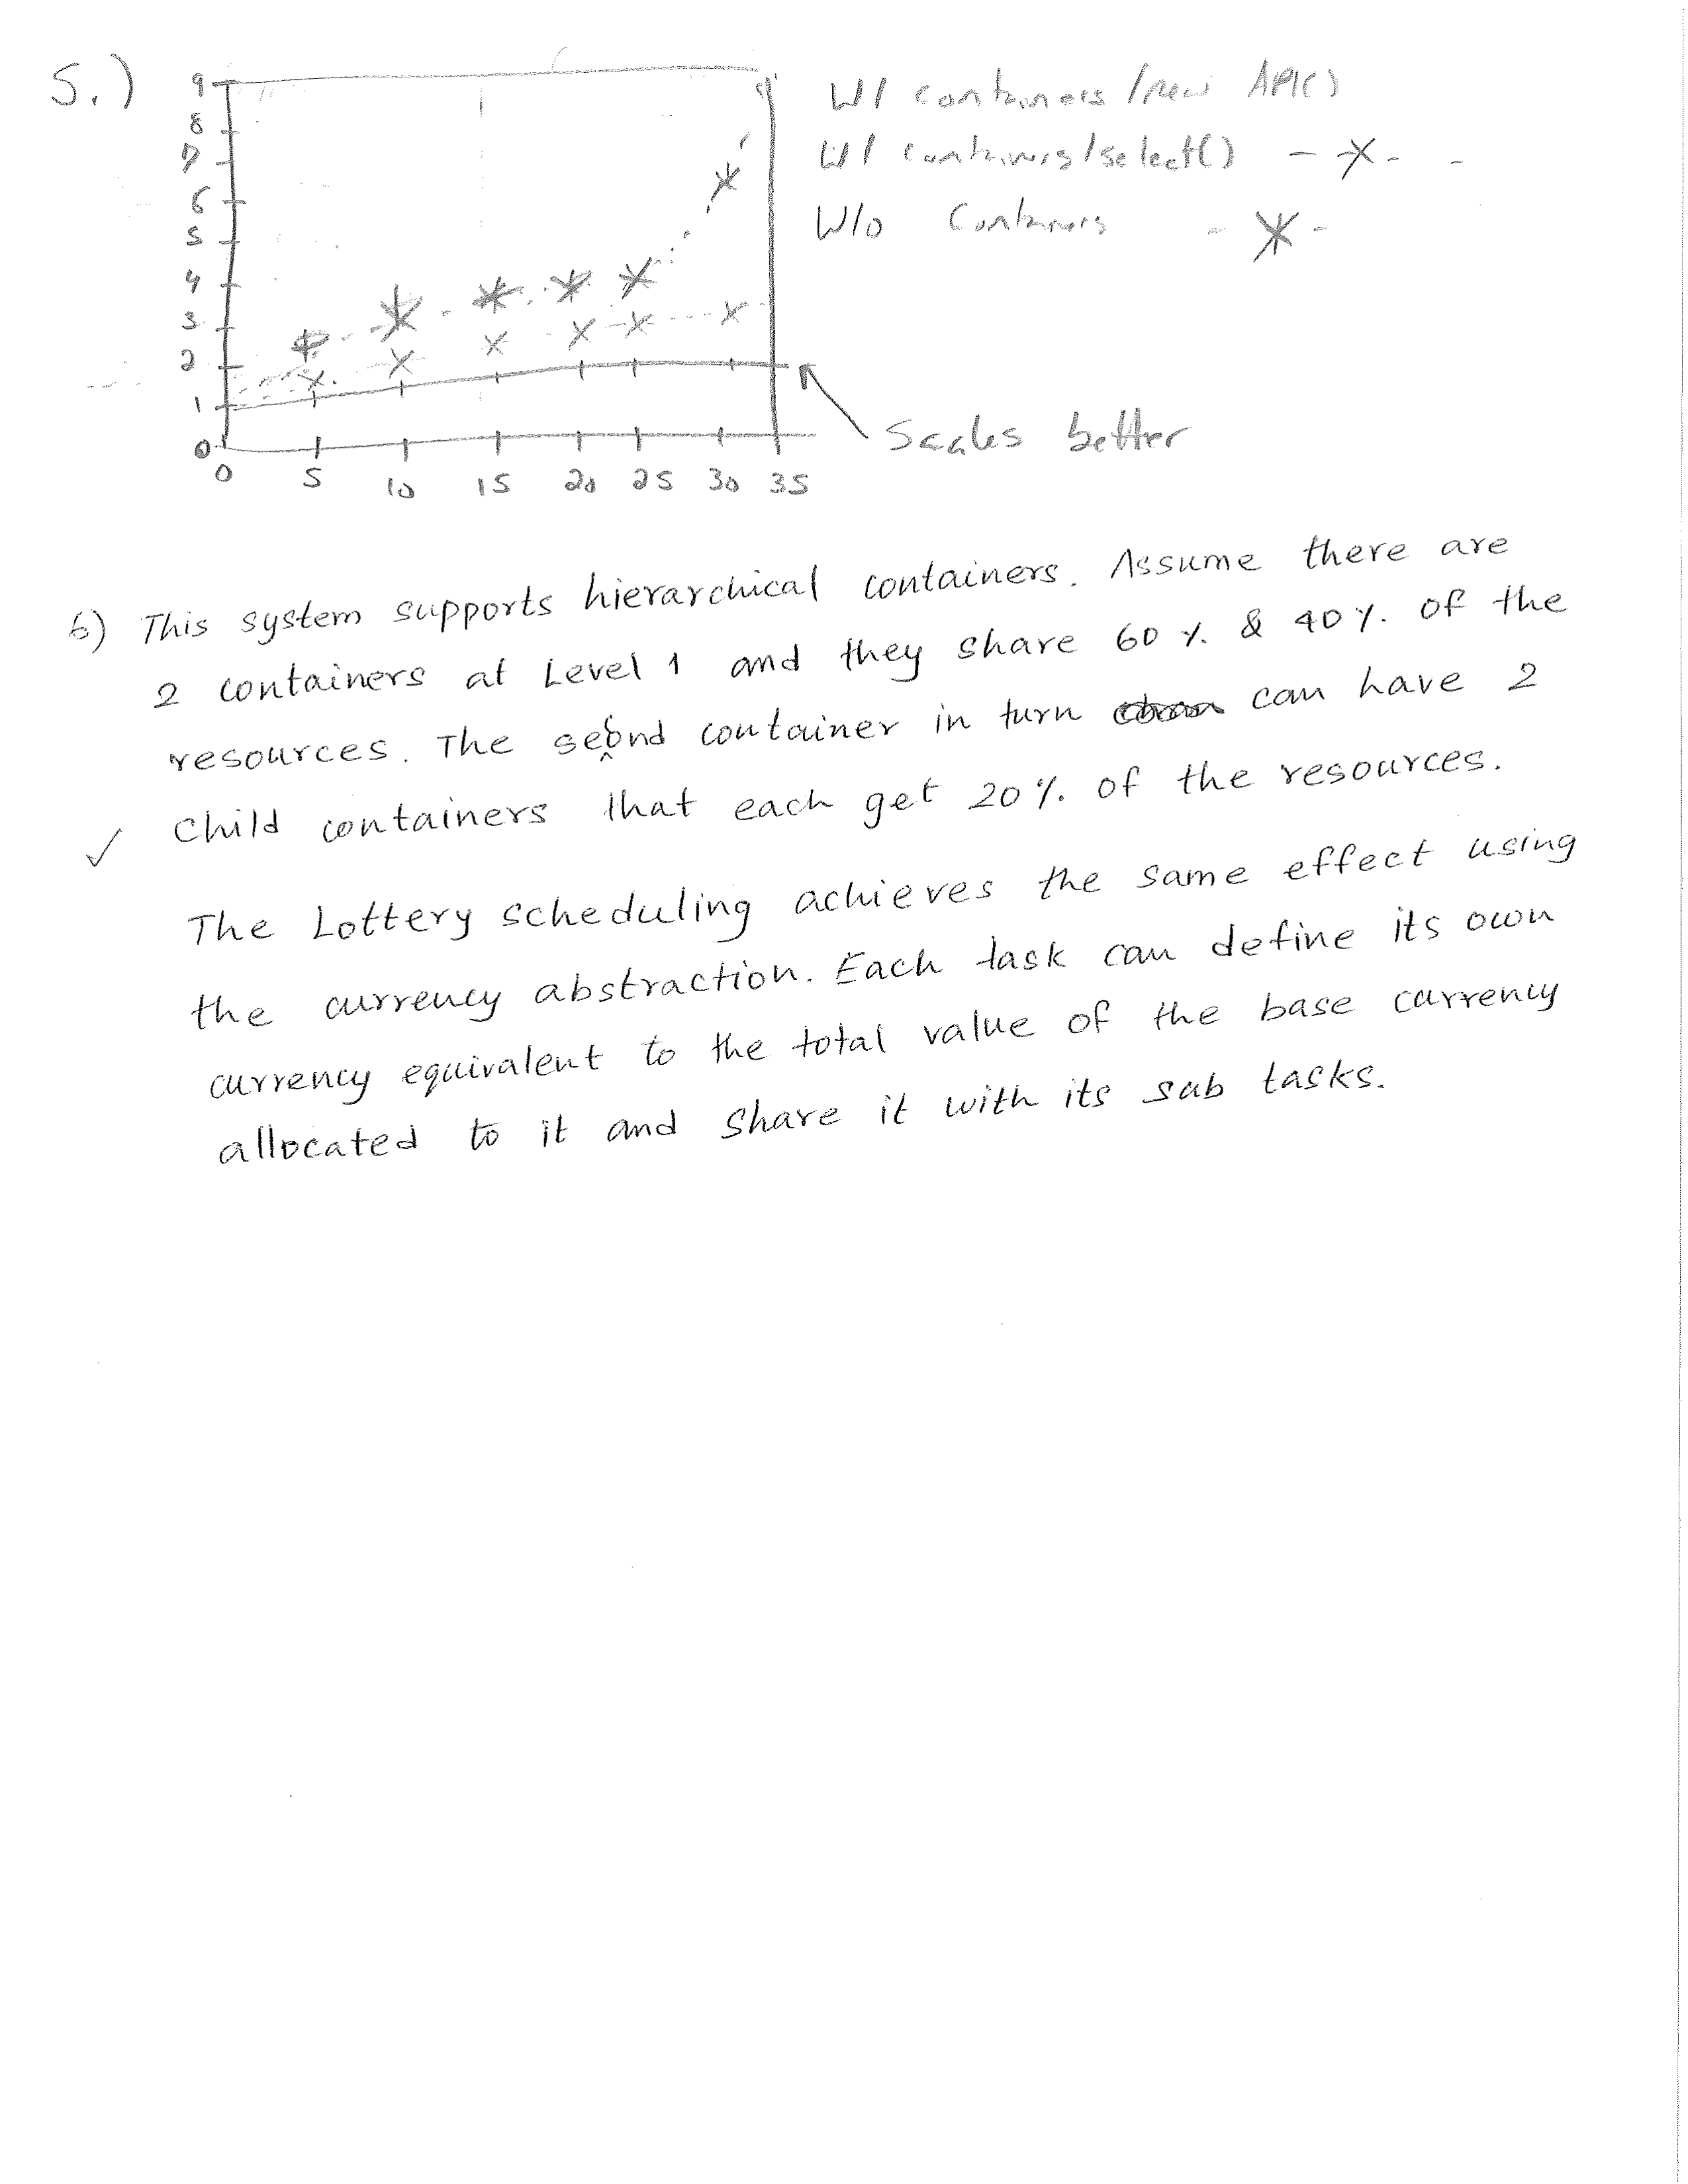 5.)
9
8
7
6
5
4
3
2
1
0
0 5 10 15 20 25 30 35
W/ containers /new API()
W/ containers/select() - X - -
W/o Containers - X -
Scales better
6) This system supports hierarchical containers. Assume there are
2 containers at Level 1 and they share 60 % & 40 % of the
resources. The second container in turn can have 2
child containers that each get 20 % of the resources.
The Lottery scheduling achieves the same effect using
the currency abstraction. Each task can define its own
currency equivalent to the total value of the base currency
allocated to it and share it with its sub tasks.